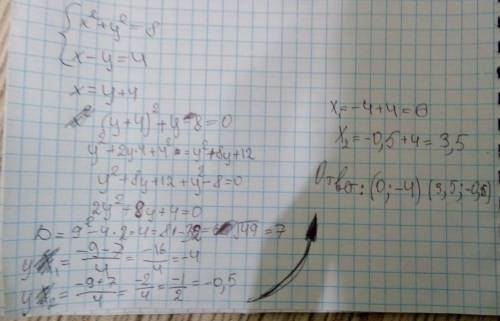 {x²+y²=8
{x-y=4
x=y+4
(y+4)²+y-8=0
y²+2y·4+4²=y²+8y+12
y²+8y+12+y²-8=0
2y²+9y+4=0
D=9²-4·2·4=81-32=√49=7
y₁=(-9-7)/4=-16/4=-4
y₂=(-9+7)/4=-2/4=-1/2=-0,5
x₁=-4+4=0
x₂=-0,5+4=3,5
Ответ: (0;-4) (3,5;-0,5)